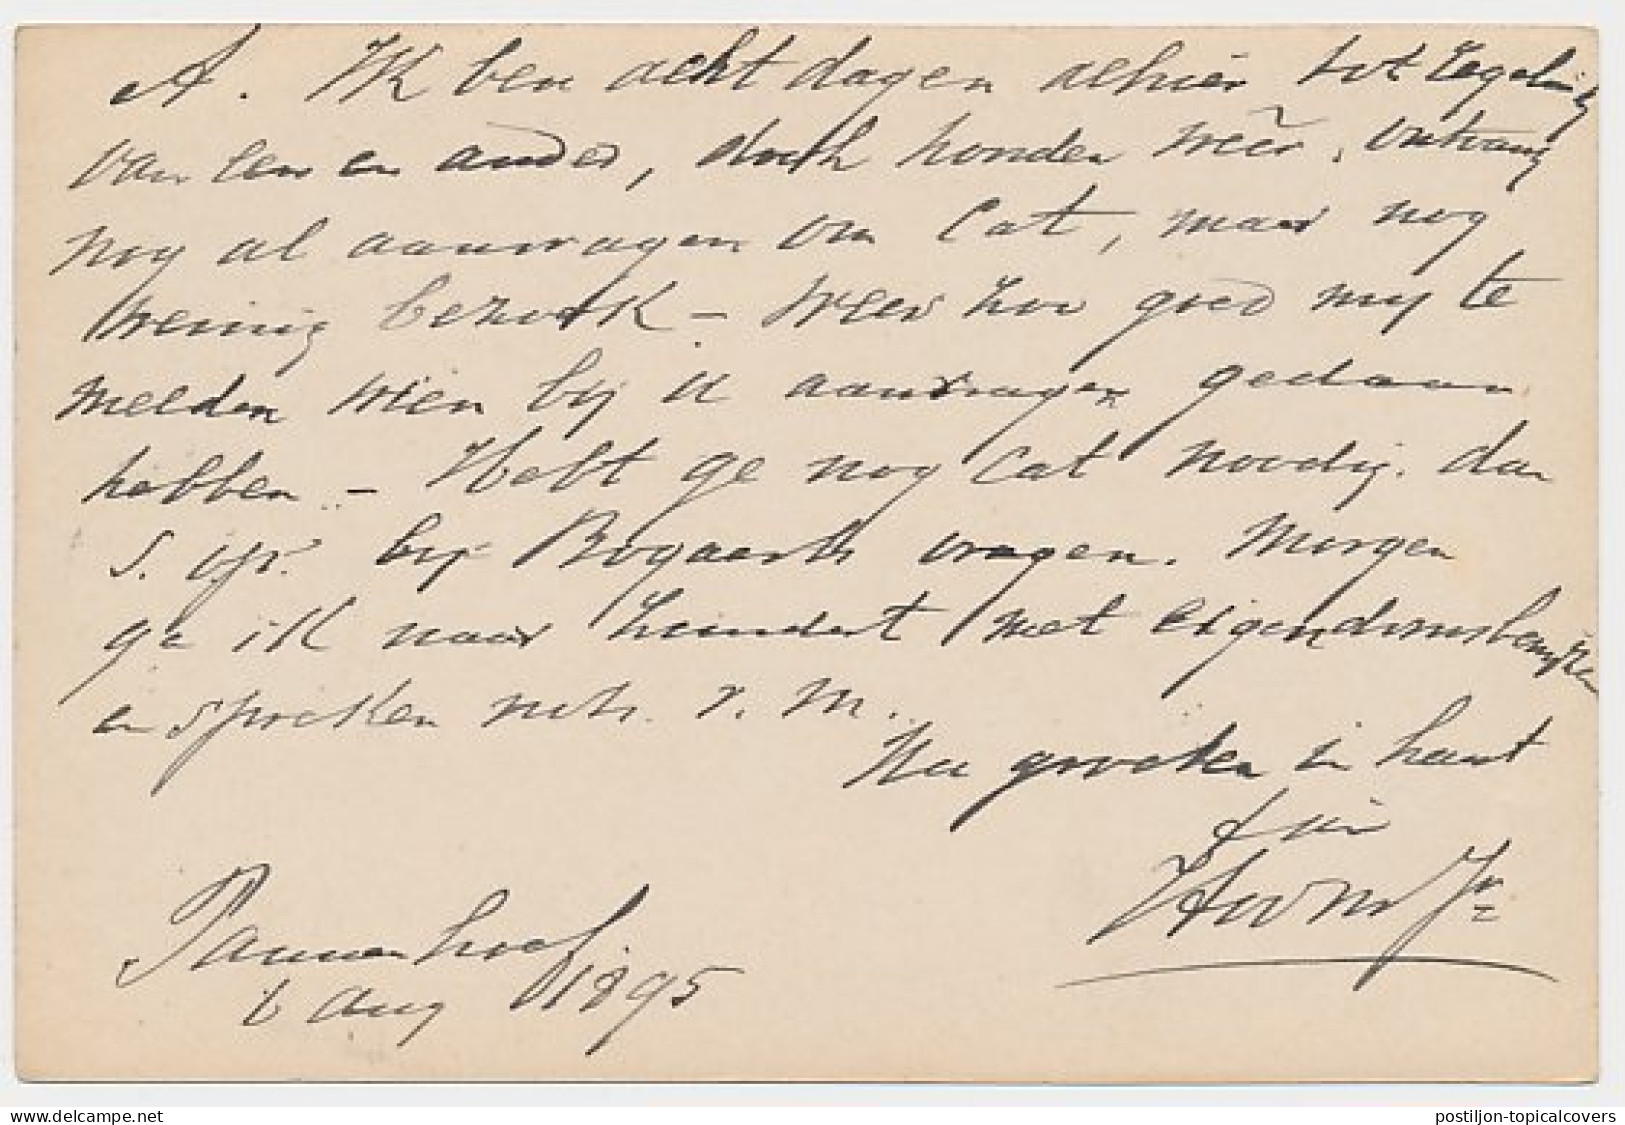 A. Ik ben acht dagen alhier tot regeling
van een en ander, doch honden weêr, ontvang
nog al aanvragen om Cat, maar nog
weinig bezoek – Wees zoo goed mij te
melden wien bij U aanvragen gedaan
hebben. – Hebt ge nog Cat noodig. dan
bij Bogaerts vragen. Morgen
ga ik naar met eigendomsbewijzen
en spreken
groeten in haast
t. à. v.
Jr
Pannenhoef
6 aug 1895
delcampe.net
postiljon-topicalcovers